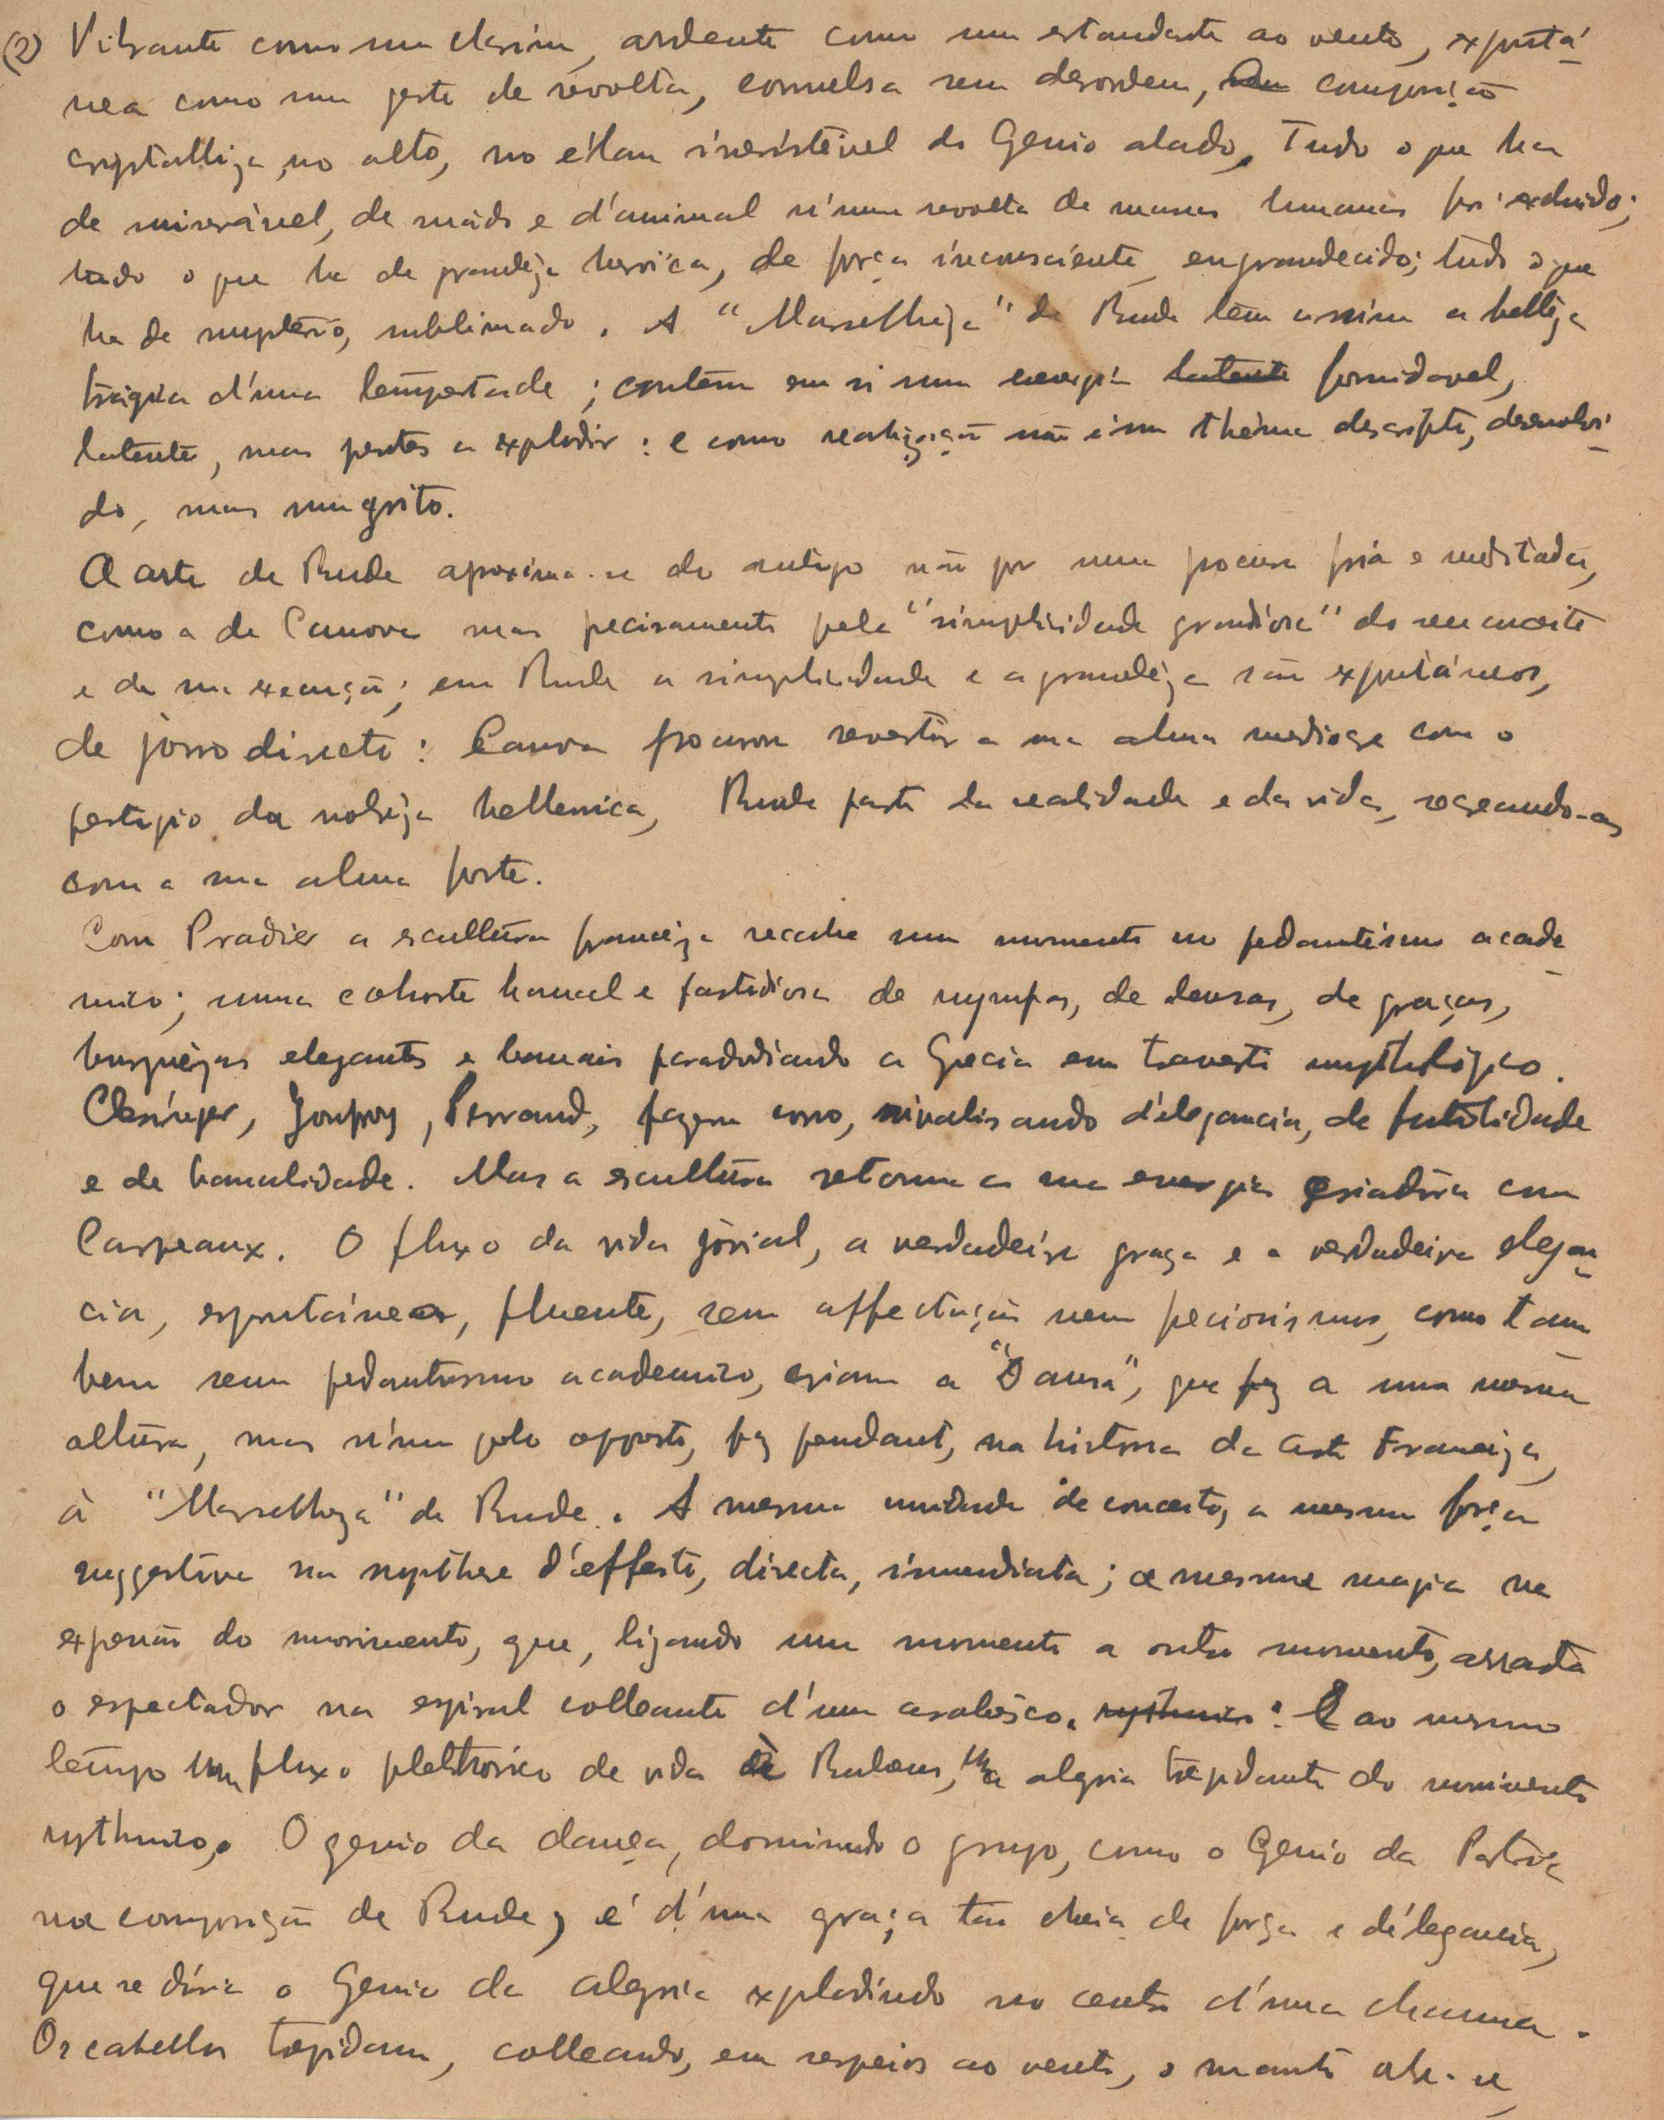 (2) Vibrante como um clarim, ardente como um estandarte ao vento, expontá-
nea como um gesto de revolta, convulsa sem desordem, composição
crystalliza, no alto, no élan irresistivel do Genio alado. Tudo o que ha
de miseravel, de e d'animal n'uma revolta de massas humanas foi excluido;
tudo o que ha de grandeza heroica, de força inconsciente engrandecido; tudo o que
ha de mysterio, sublimado. A "Marselheza" de Rude tem assim a belleza
trágica d'uma tempestade; contém em si uma energia latente formidavel,
latente, mas prestes a explodir: e como realização não é um thema descripto, desenvolvi-
do, mas um grito.
A arte de Rude aproxima-se do antigo não por uma procura fria e meditada,
como a de Canova mas precisamente pela "simplicidade grandiosa" do seu conceito
e da sua execução; em Rude a simplicidade e a grandeza são expontáneos,
de jorro directo: Canova procura revestir a sua alma mediocre com o
prestigio da nobreza hellenica, Rude parte da realidade e da vida, recreando-as
com a sua alma forte.
Com Pradier a escultura franceza recahe um momento no pedantismo acade-
mico; uma cohorte banal e fastidiosa de nymfas, de deusas, de graças,
burguezas elegantes e banais parodiando a Grecia em travesti mythologico.
Clesinger, Jouffroy, Perraud, fazem isso, rivalisando d'elegancia, de futilidade
e de banalidade. Mas a escultura retoma a sua energia criadora com
Carpeaux. O fluxo da vida jovial, a verdadeira graça e a verdadeira elegan-
cia, espontánea, fluente, sem affectação nem preciosismos, como tam-
bem sem pedantismo academico, criam a "Dansa", que fez a uma mesma
altura, mas n'um polo opposto, faz pendant, na historia da Arte Franceza,
à "Marselheza" de Rude. A mesma unidade de conceito, a mesma força
suggestiva na synthese d'effeito, directa, immediata; a mesma magia na
expressão do movimento, que, ligando um momento a outro momento, arrasta
o espectador na espiral colleante d'um arabesco. rythmico: E ao mesmo
tempo um fluxo plethorico de vida à Rubens, uma alegria trepidante do movimento
rythmico. O genio da dança, dominando o grupo, como o Genio da Patria
na composição de Rude, é d'uma graça tão cheia de força e d'elegancia,
que se diria o Genio da alegria explodindo no centro d'uma chamma.
Os cabellos trepidam, colleando, em serpeios ao vento, o manto abre-se,